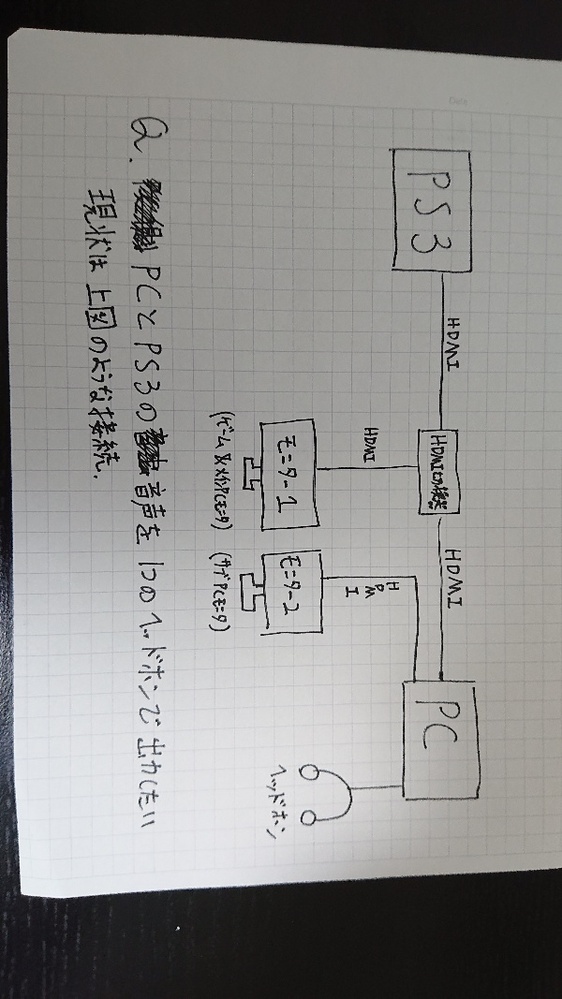 PS3
HDMI
HDMI切換器
HDMI
PC
HDMI
HDMI
モニター1
モニター2
(ゲーム&メインPCモニタ)
(サブPCモニタ)
ヘッドホン
Q. PCとPS3の音声を1つのヘッドホンで出力したい
現状は上図のような接続.